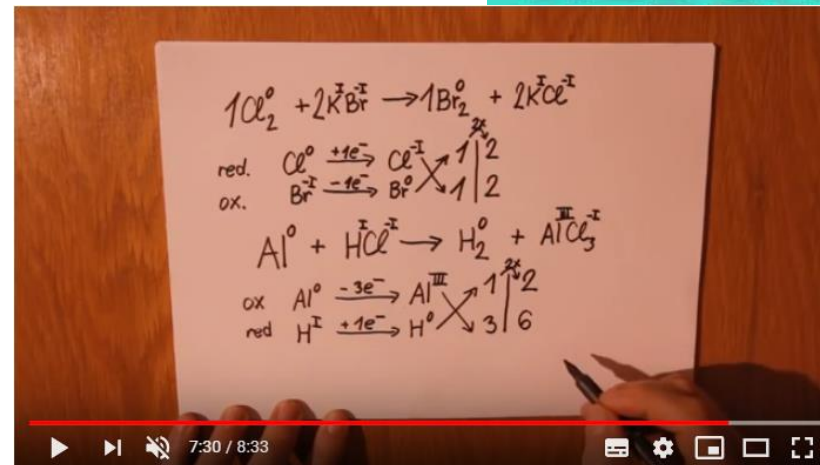 1Cl₂⁰ + 2KᴵBr⁻ᴵ → 1Br₂⁰ + 2KᴵCl⁻ᴵ
2x
red. Cl⁰ +1e⁻→ Cl⁻ᴵ 1 | 2
ox. Br⁻ᴵ -1e⁻→ Br⁰ 1 | 2
Al⁰ + HᴵCl⁻ᴵ → H₂⁰ + AlᴵᴵᴵCl₃⁻ᴵ
2x
ox Al⁰ -3e⁻→ Alᴵᴵᴵ 1 | 2
red Hᴵ +1e⁻→ H⁰ 3 | 6
7:30 / 8:33